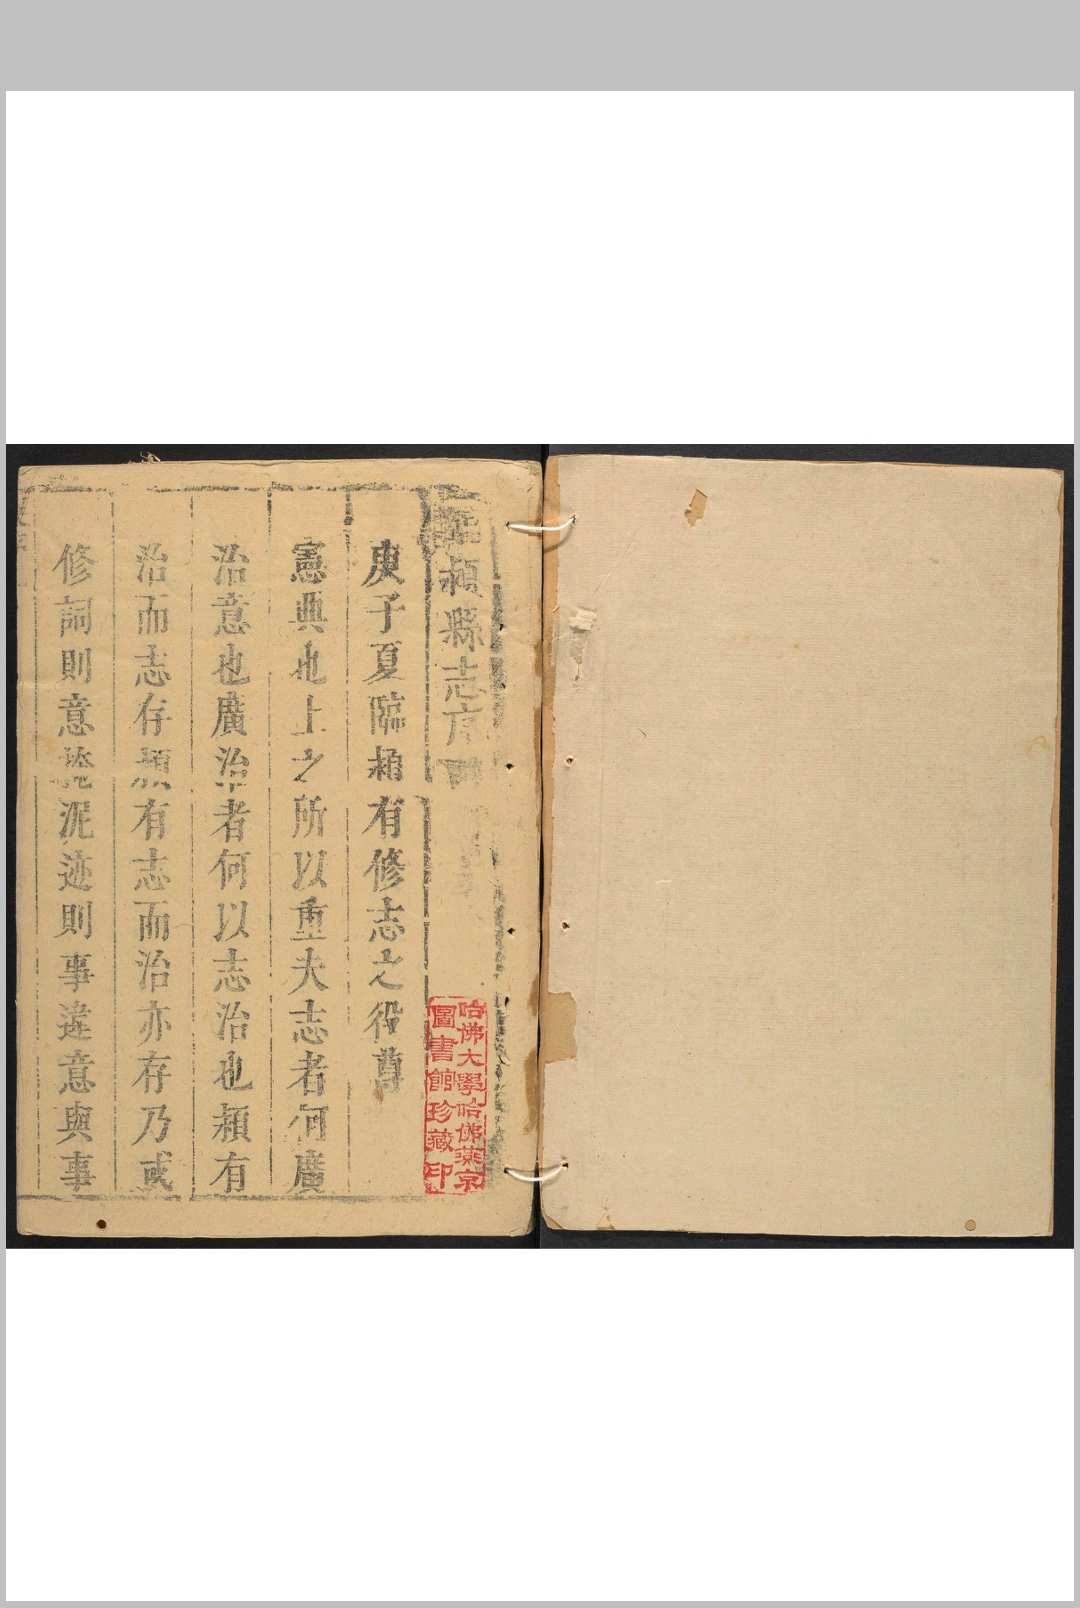 潁縣志序
庚子夏臨潁有修志之役尊
憲典也上之所以重夫志者何廣
治意也廣治者何以志治也潁有
治而志存潁有志而治亦存乃或
修詞則意泥迹則事違意與事
哈佛大學哈佛燕京
圖書館珍藏印